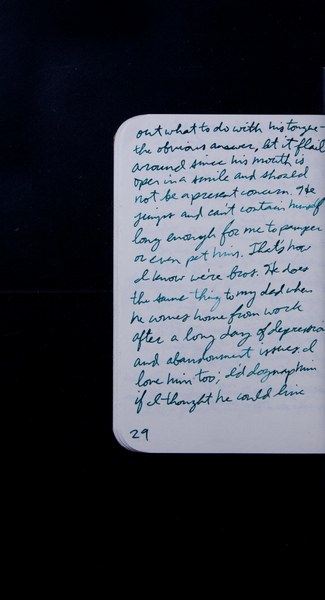 out what to do with his tongue -
the obvious answer, let it flail
around since his mouth is
open in a smile and should
not be a present concern. He
jumps and can't contain himself
long enough for me to pamper
or even pet him. That's how
I know we're bros. He does
the same thing to my dad when
he comes home from work
after a long day of depression
and abandonment issues. I
love him too; I'd dognap him
if I thought he could live
29